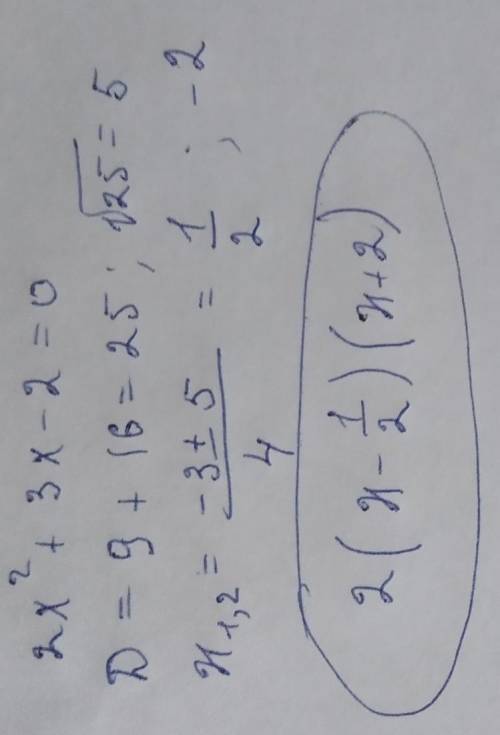 2x² + 3x - 2 = 0
D = 9 + 16 = 25 ; √25 = 5
x₁,₂ = (-3 ± 5)/4 = 1/2 ; -2
2(x - 1/2)(x + 2)